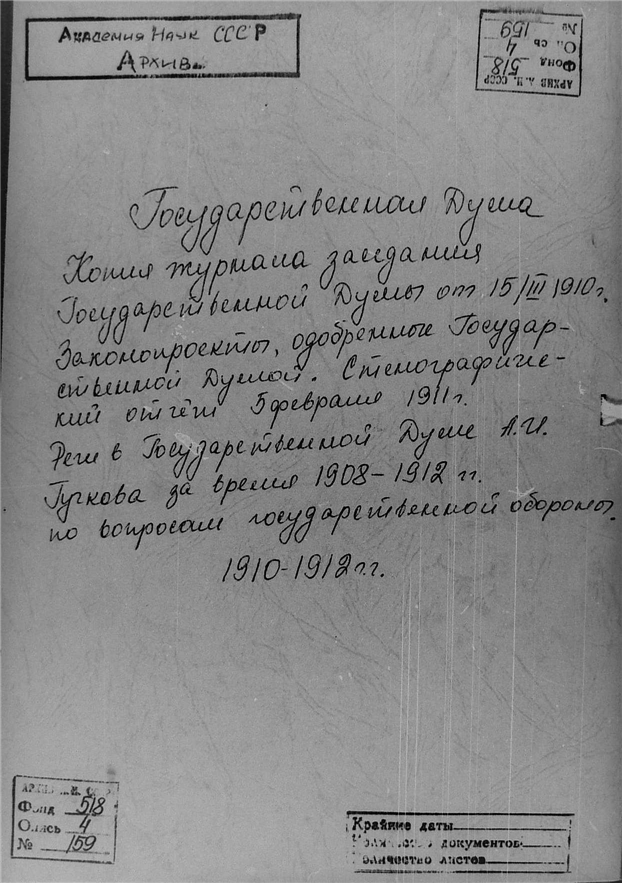 Академия Наук СССР
Архив
АРХИВ А. Н. СССР
Фонд 518
Опись 4
№ 159
Государственная Дума
Копия журнала заседания
Государственной Думы от 15/III 1910г.
Законопроекты, одобренные Государ-
ственной Думой. Стенографиче-
кий отчёт 5 февраля 1911г.
Речи в Государственной Думе А.И.
Гучкова за время 1908-1912 гг.
по вопросам государственной обороны.
1910-1912г.г.
Фонд 518
Опись 4
№ 159
Крайние даты
Количество документов
Количество листов